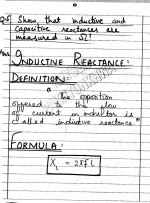 Q5 Show, that inductive and
capacitive reactances are
measured in Ω?
Ans INDUCTIVE REACTANCE:
DEFINITION:
The opposition
offered to the flow
of current in inductor is
called inductive reactance.
FORMULA:
X_L = 2πfL